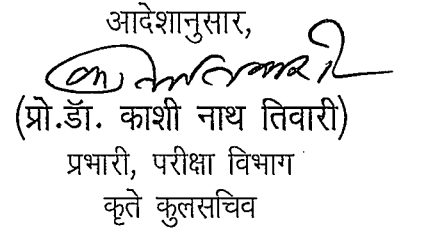 आदेशानुसार,
(प्रो.डॅा. काशी नाथ तिवारी)
प्रभारी, परीक्षा विभाग
कृते कुलसचिव